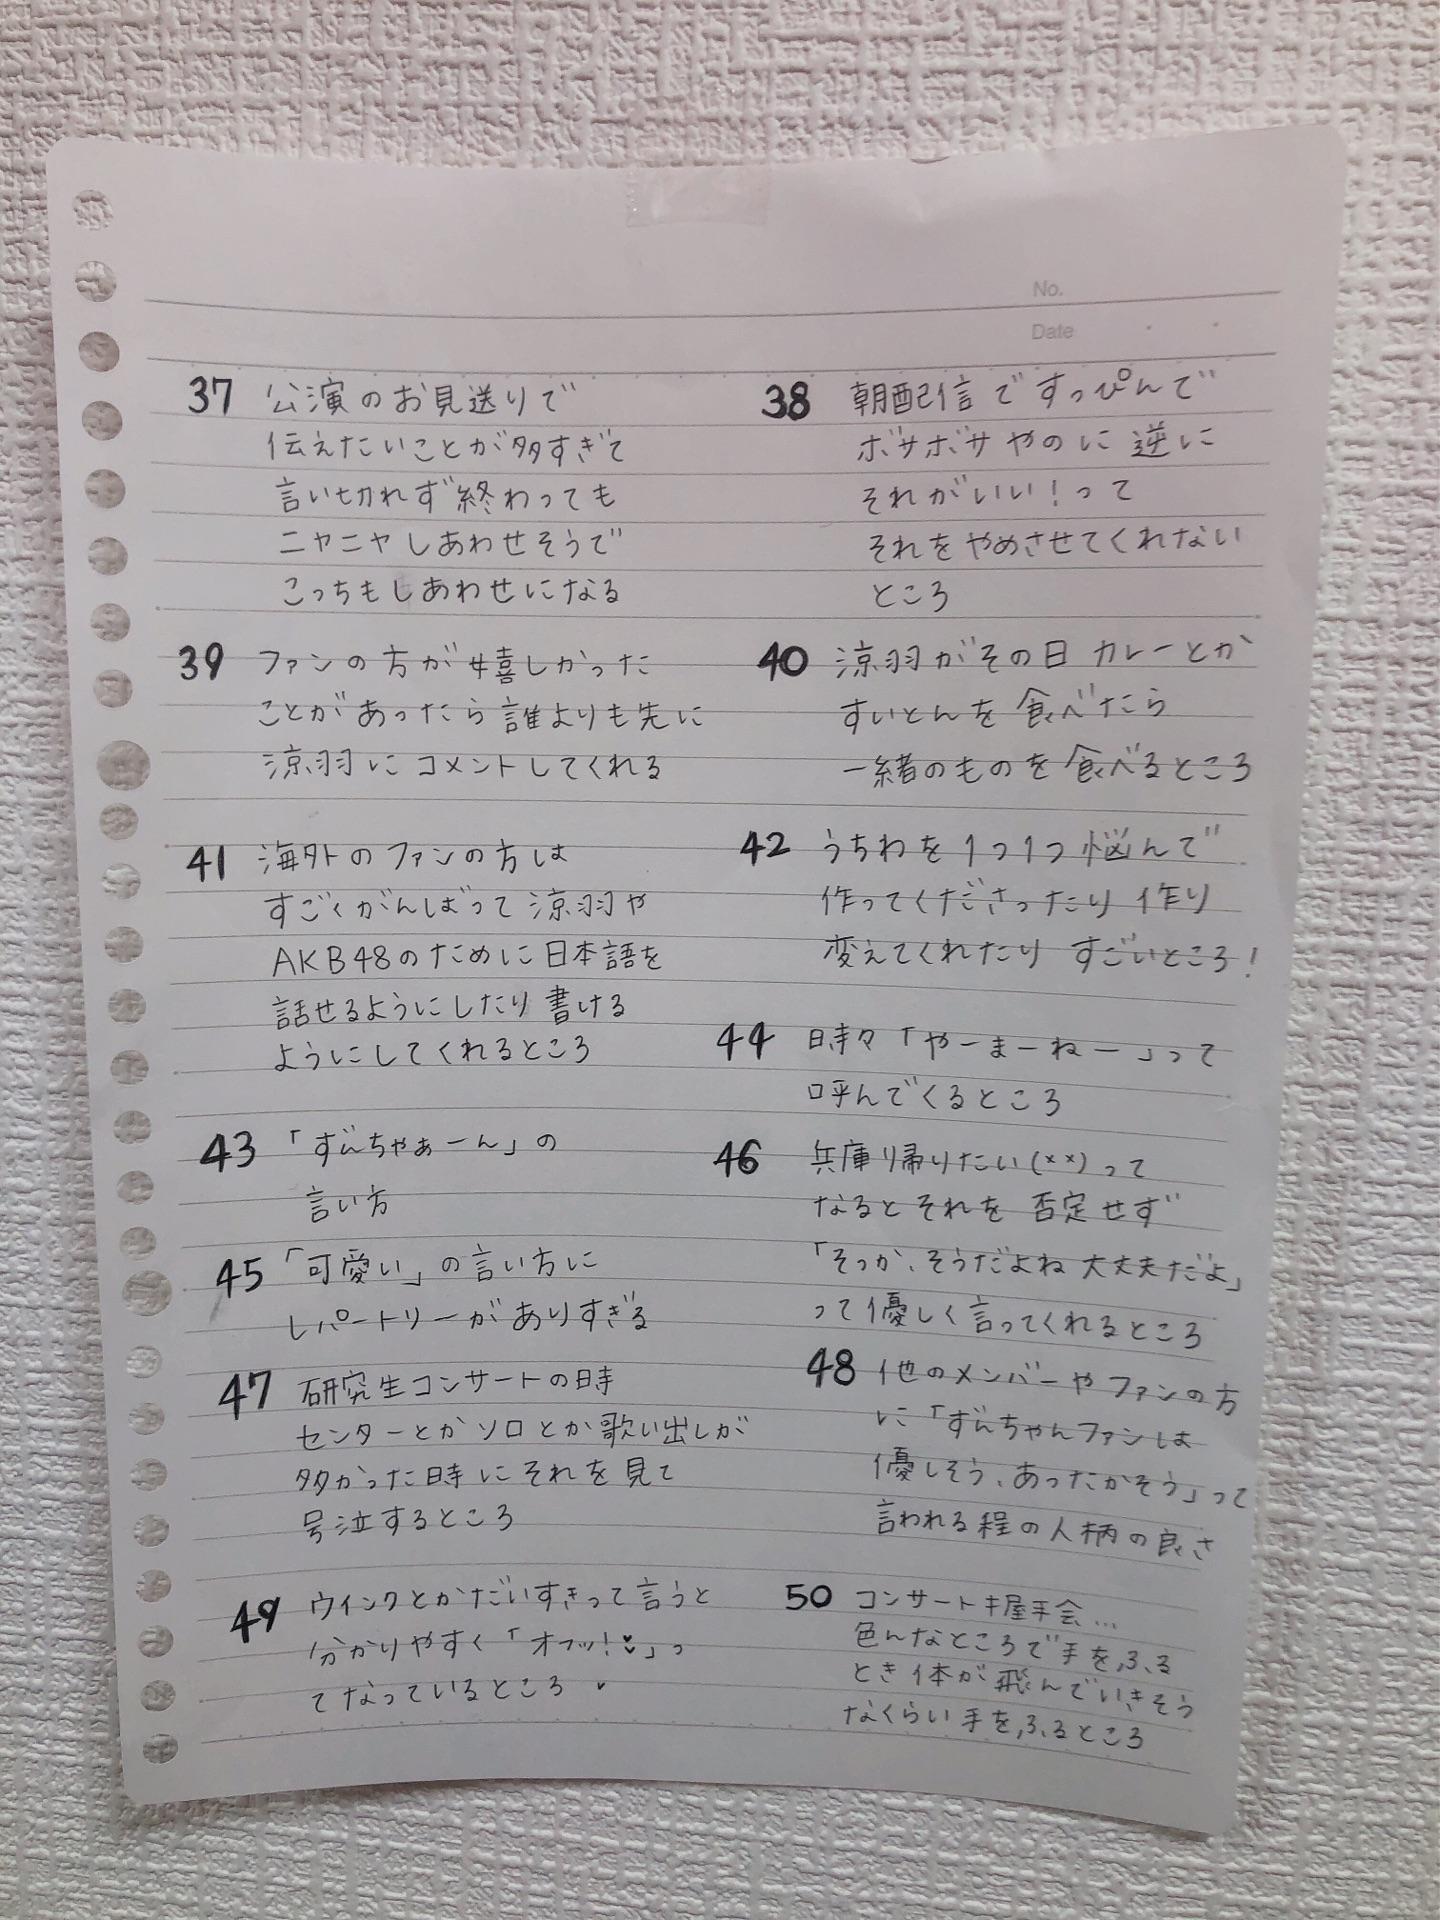 No.
Date
37 公演のお見送りで
伝えたいことが多すぎて
言い切れず終わっても
ニヤニヤしあわせそうで
こっちもしあわせになる
38 朝配信ですっぴんで
ボサボサやのに逆に
それがいい！って
それをやめさせてくれない
ところ
39 ファンの方が嬉しかった
ことがあったら誰よりも先に
涼羽にコメントしてくれる
40 涼羽がその日カレーとか
すいとんを食べたら
一緒のものを食べるところ
41 海外のファンの方は
すごくがんばって涼羽や
AKB48のために日本語を
話せるようにしたり書ける
ようにしてくれるところ
42 うちわを1つ1つ悩んで
作ってくださったり作り
変えてくれたりすごいところ！
43 「ずんちゃぁーん」の
言い方
44 時々「やーまーねー」って
呼んでくるところ
45 「可愛い」の言い方に
レパートリーがありすぎる
46 兵庫帰りたい(××)って
なるとそれを否定せず
「そっか、そうだよね大丈夫だよ」
って優しく言ってくれるところ
47 研究生コンサートの時
センターとかソロとか歌い出しが
多かった時にそれを見て
号泣するところ
48 他のメンバーやファンの方
に「ずんちゃんファンは
優しそう、あったかそう」って
言われる程の人柄の良さ
49 ウインクとかだいすきって言うと
分かりやすく「オフッ！♥」っ
てなっているところ
50 コンサート握手会…
色んなところで手をふる
とき体が飛んでいきそう
なくらい手をふるところ